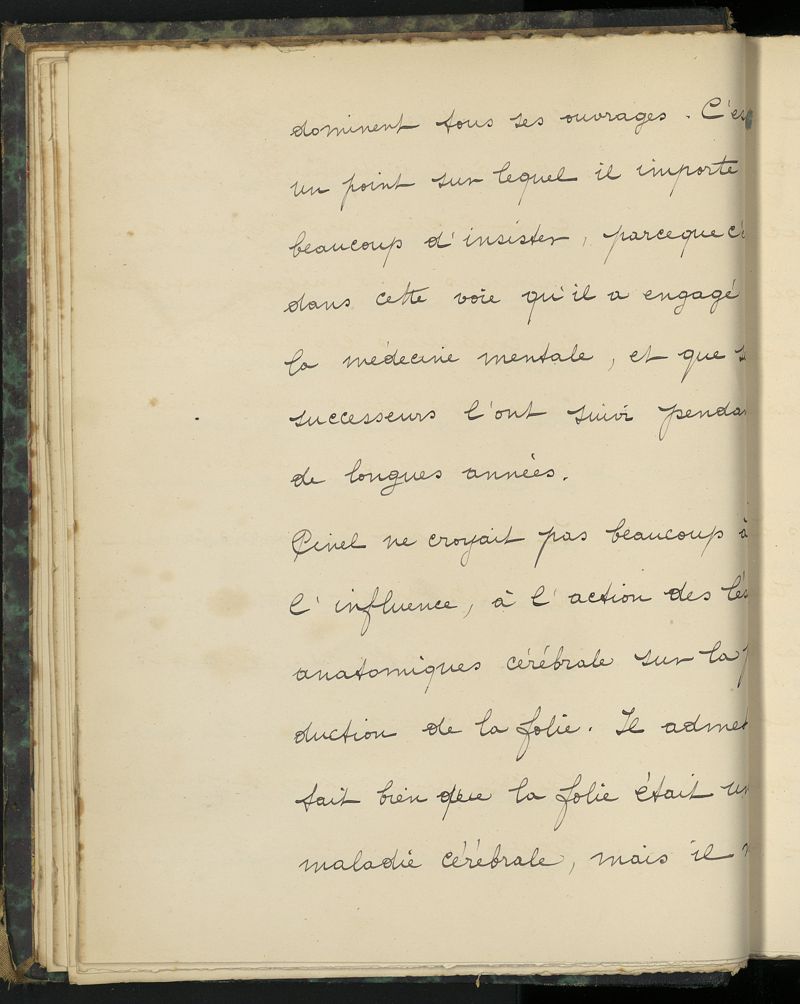 dominent tous ses ouvrages. C'es
un point sur lequel il importe
beaucoup d'insister, parceque c'é
dans cette voie qu'il a engagé
la médecine mentale, et que s
successeurs l'ont suivi pendan
de longues années.
Pinel ne croyait pas beaucoup à
l'influence, à l'action des lés
anatomiques cérébrale sur la p
duction de la folie. Il admet
tait bien que la folie était un
maladie cérébrale, mais il n